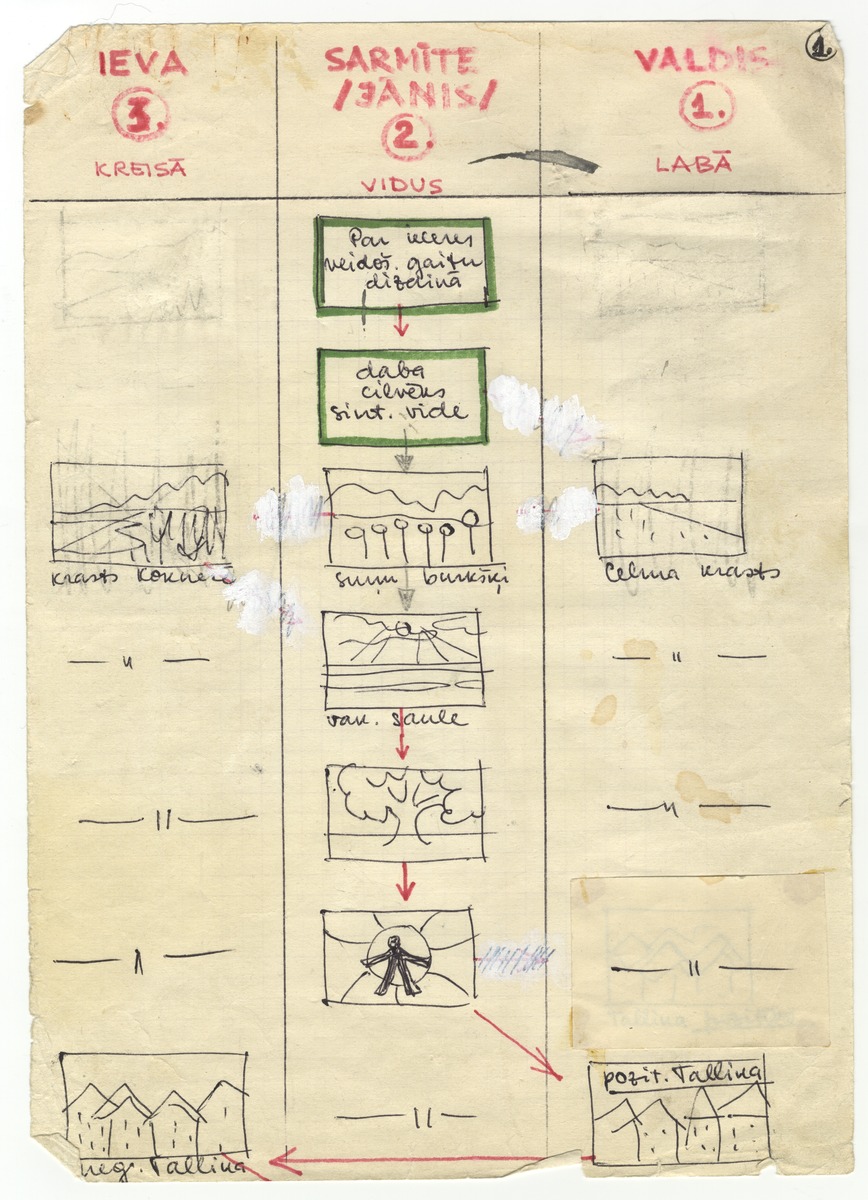 1.
IEVA
3.
KREISĀ
SARMĪTE
/JĀNIS/
2.
VIDUS
VALDIS
1.
LABĀ
Par ieceres
veidoš. gaitu
dizainā
daba
cilvēks
sint. vide
krasts Koknesē
suņu burkšķi
Celma krasts
— " —
vak. saule
— " —
— " —
— " —
— " —
— " —
neg. Tallina
— " —
pozit. Tallina